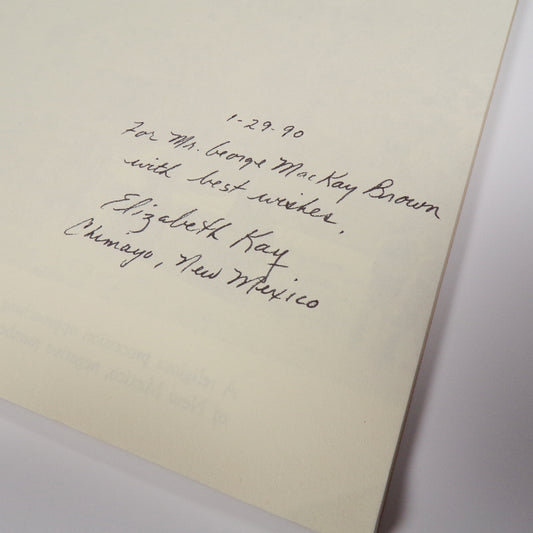 1-29-90
For Mr. George MacKay Brown
with best wishes,
Elizabeth Kay
Chimayo, New Mexico
A religious procession
of New Mexico, negative number